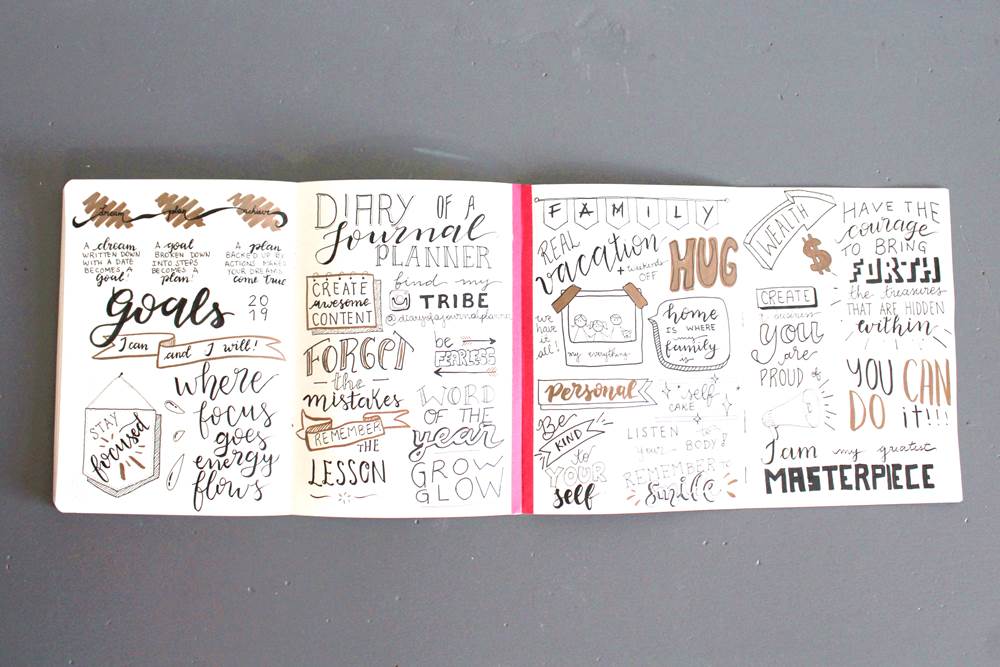 dream
plan
achieve
A dream
WRITTEN DOWN
WITH A DATE
BECOMES A
goal!
A goal
BROKEN DOWN
INTO STEPS
BECOMES A
plan!
A plan
BACKED UP BY
ACTIONS MAKES
YOUR DREAMS
come true
Goals
20
19
I can and I will!
STAY
focused
where
focus
goes
energy
flows
DIARY OF A
Journal
PLANNER
CREATE
awesome
CONTENT
find my
TRIBE
@diaryofajournalplanner
FORGET
the
mistakes
REMEMBER
THE
LESSON
be
FEARLESS
WORD
OF THE
year
GROW
GLOW
FAMILY
REAL
vacation
+ weekends
OFF
HUG
we
have
it
all!
my everything
home
IS WHERE
my
family
is
Personal
self
CARE
Be
KIND
to
YOUR
self
LISTEN TO
your BODY!
REMEMBER TO
Smile
WEALTH
$
CREATE
a business
you
are
PROUD of
HAVE THE
courage
TO BRING
FURTH
the treasures
THAT ARE HIDDEN
within
YOU CAN
DO it!!!
I am my greatest
MASTERPIECE